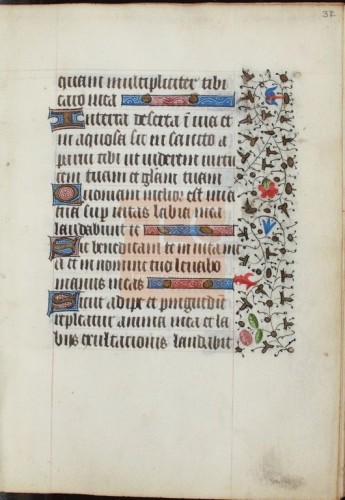 37
quam multipliciter tibi
caro mea
In terra deserta ī via et
in aquosa sic in sancto a
parui tibi ut viderem virtu
tem tuam et gl̄am tuam
Quoniam melior est mia
tua sup vitas labia mea
laudabunt te
Sic benedicam te in vita me
a et in nomine tuo levabo
manus meas
Sicut adipe et pinguedīe
repleatur anima mea et la
bijs exultationis laudabit